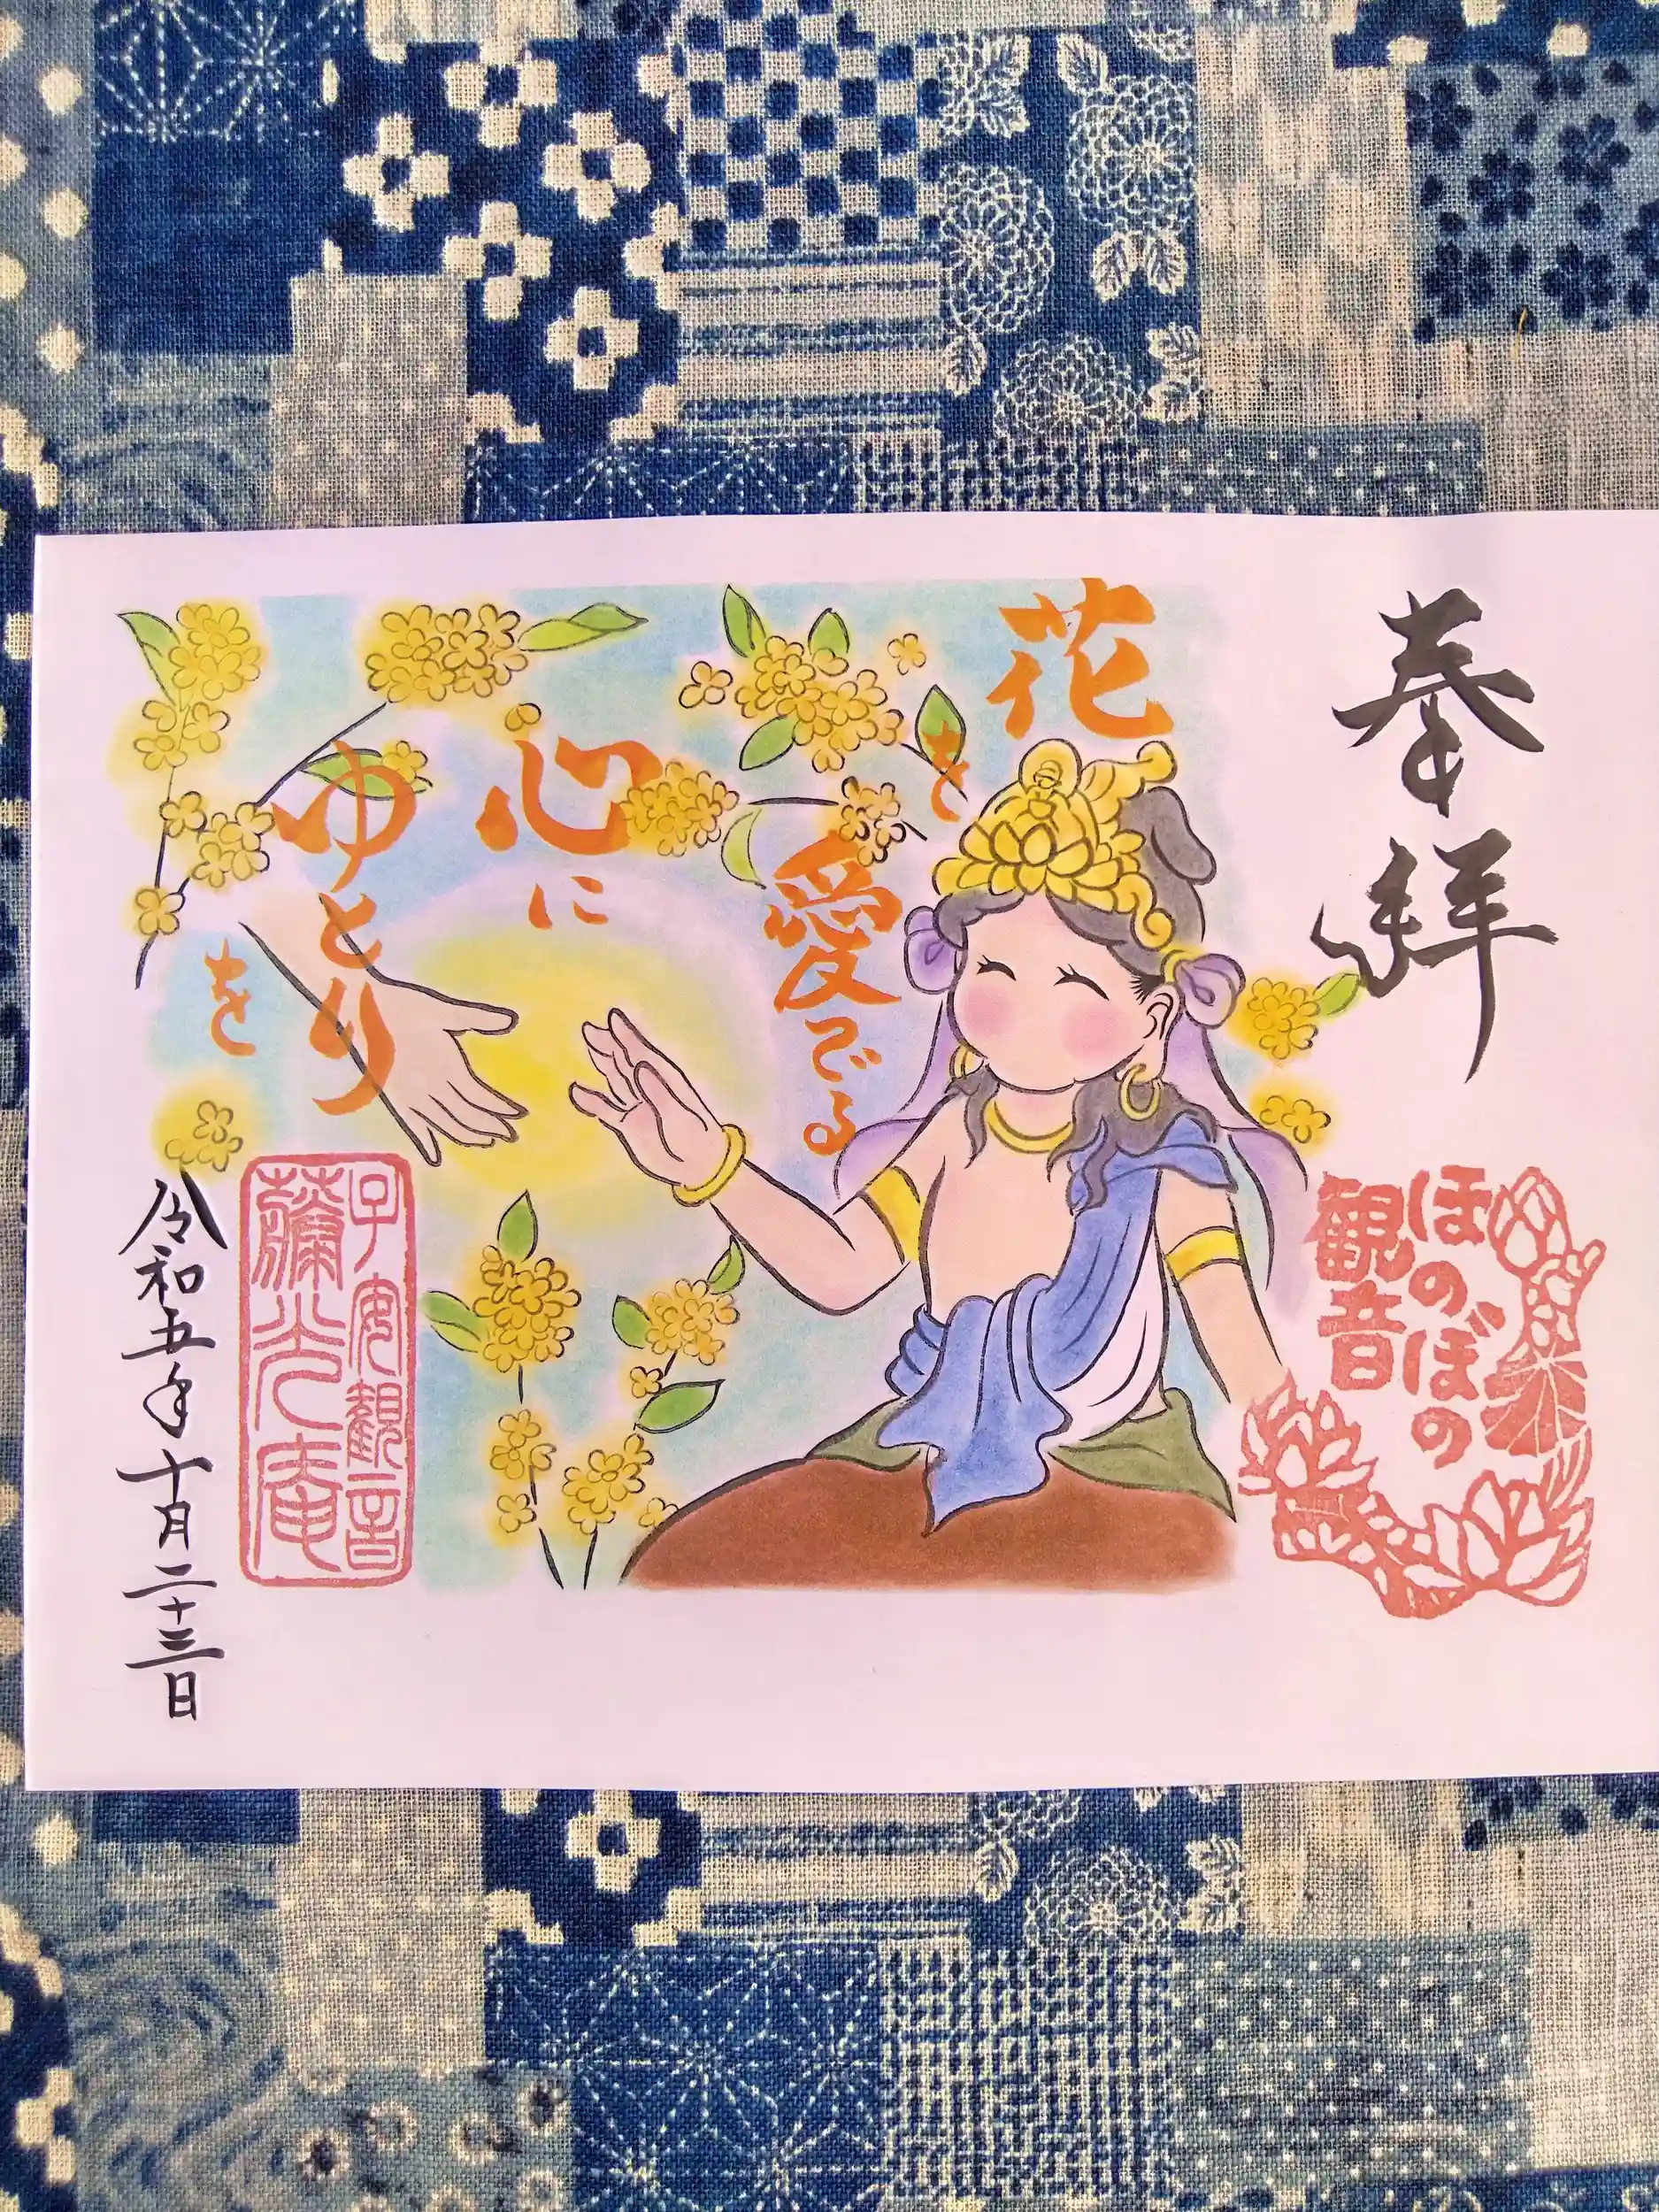 奉拝
ほのぼの
観音
花を
愛でる
心に
ゆとり
を
子安観音
藥光庵
令和五年十月二十三日